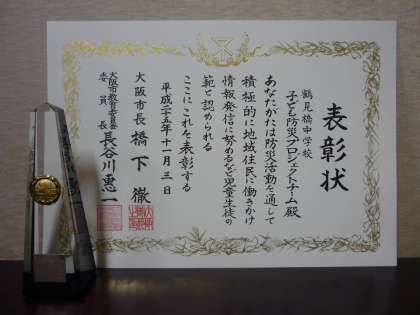 表彰状
鶴見橋中学校
子ども防災プロジェクトチーム殿
あなたがたは防災活動を通して
積極的に地域住民に働きかけ
情報発信に努めるなど児童生徒の
範と認められる
ここにこれを表彰する
平成二十五年十一月三日
大阪市長 橋下 徹
大阪市教育委員会
委員長 長谷川惠一